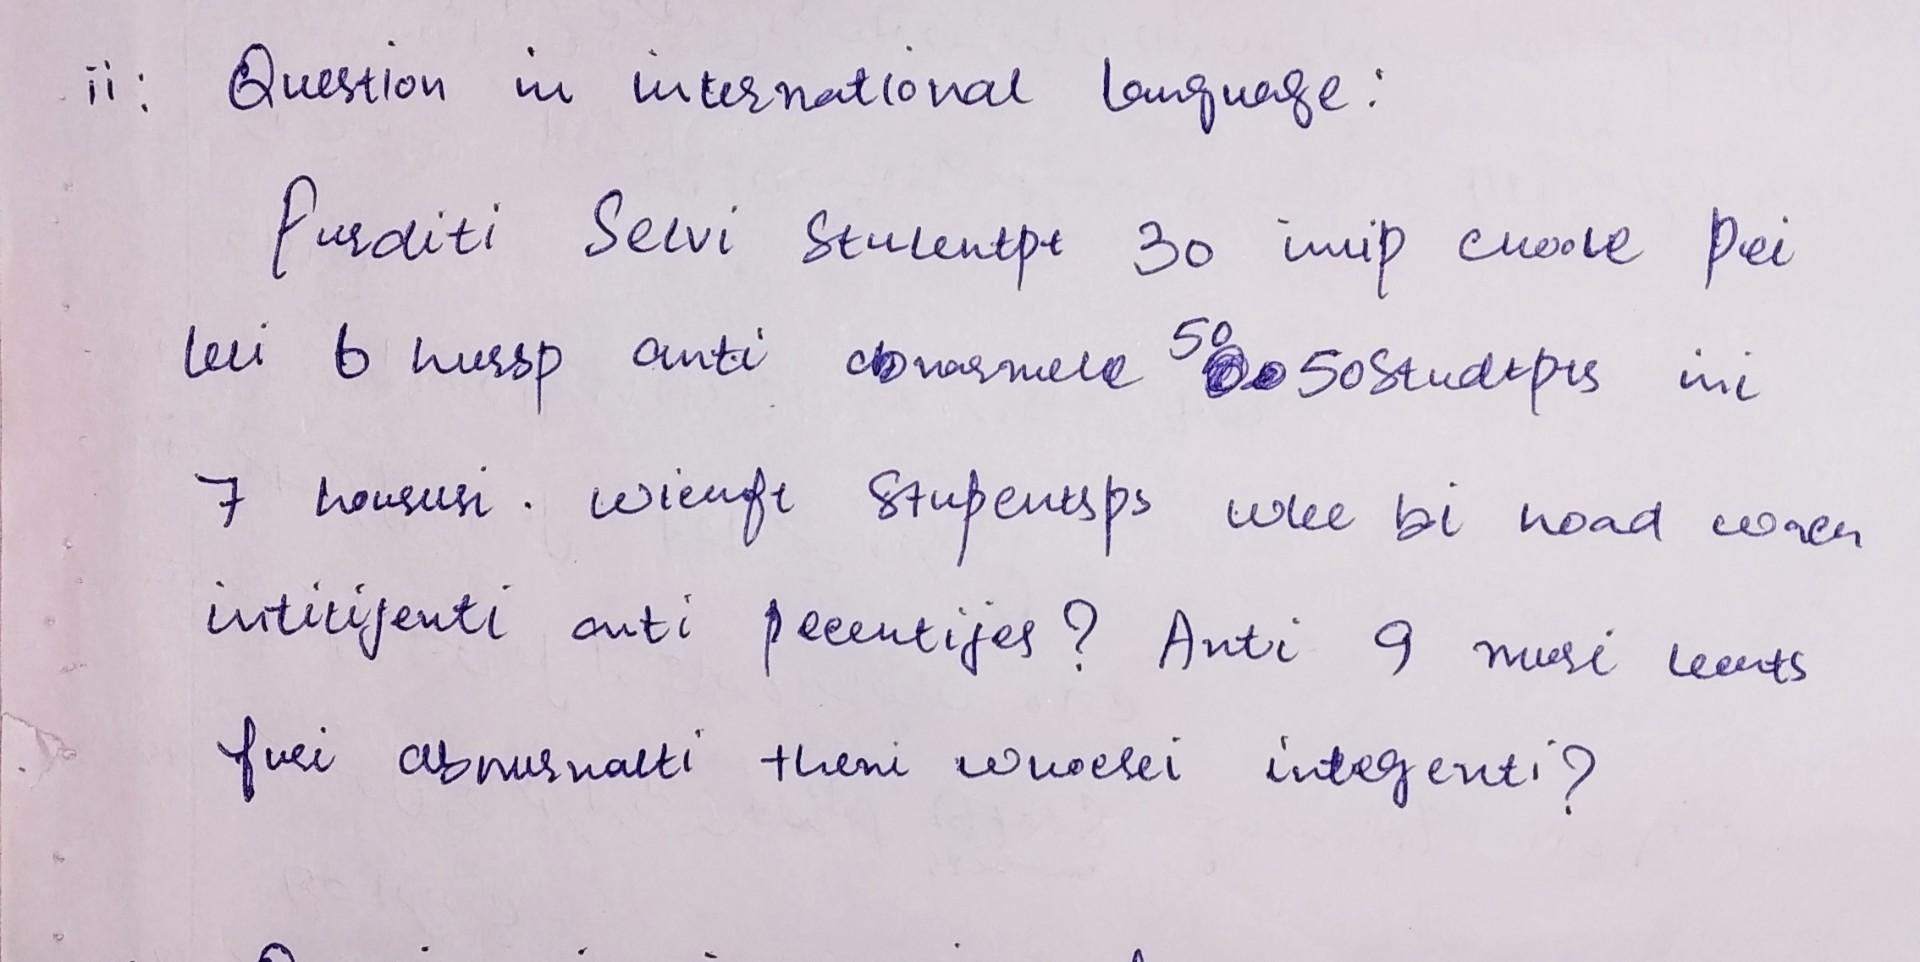 ii: Question in international language:
Purditi Selvi Stulentpt 30 imip choole Pei
leli 6 hussp anti abnormele 50 50 Studtpts ini
7 housusi. wiengt Stupentsps wlee bi hoad
intilijenti anti pecentijes? Anti 9 musi leents
fusi abnusnalti theni whoelsei integenti?